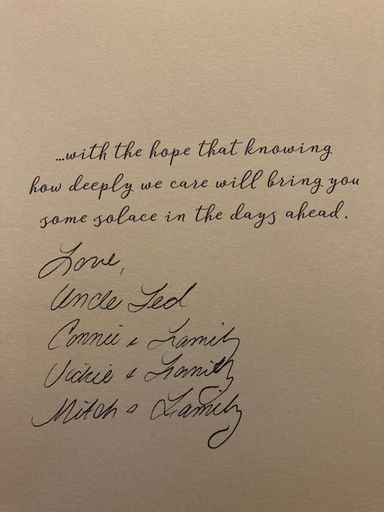 ...with the hope that knowing
how deeply we care will bring you
some solace in the days ahead.
Love,
Uncle Ted
Connie & Family
Vickie & Family
Mitch & Family